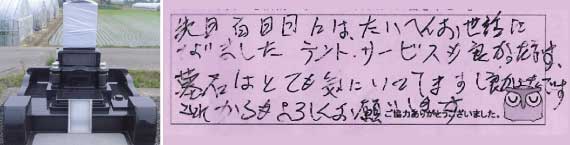 先日百日目にはたいへんお世話に
なりました テント、サービスも良かったです。
墓石はとても気にいってます 良かったです!
これからもよろしくお願いします
ご協力ありがとうございました。